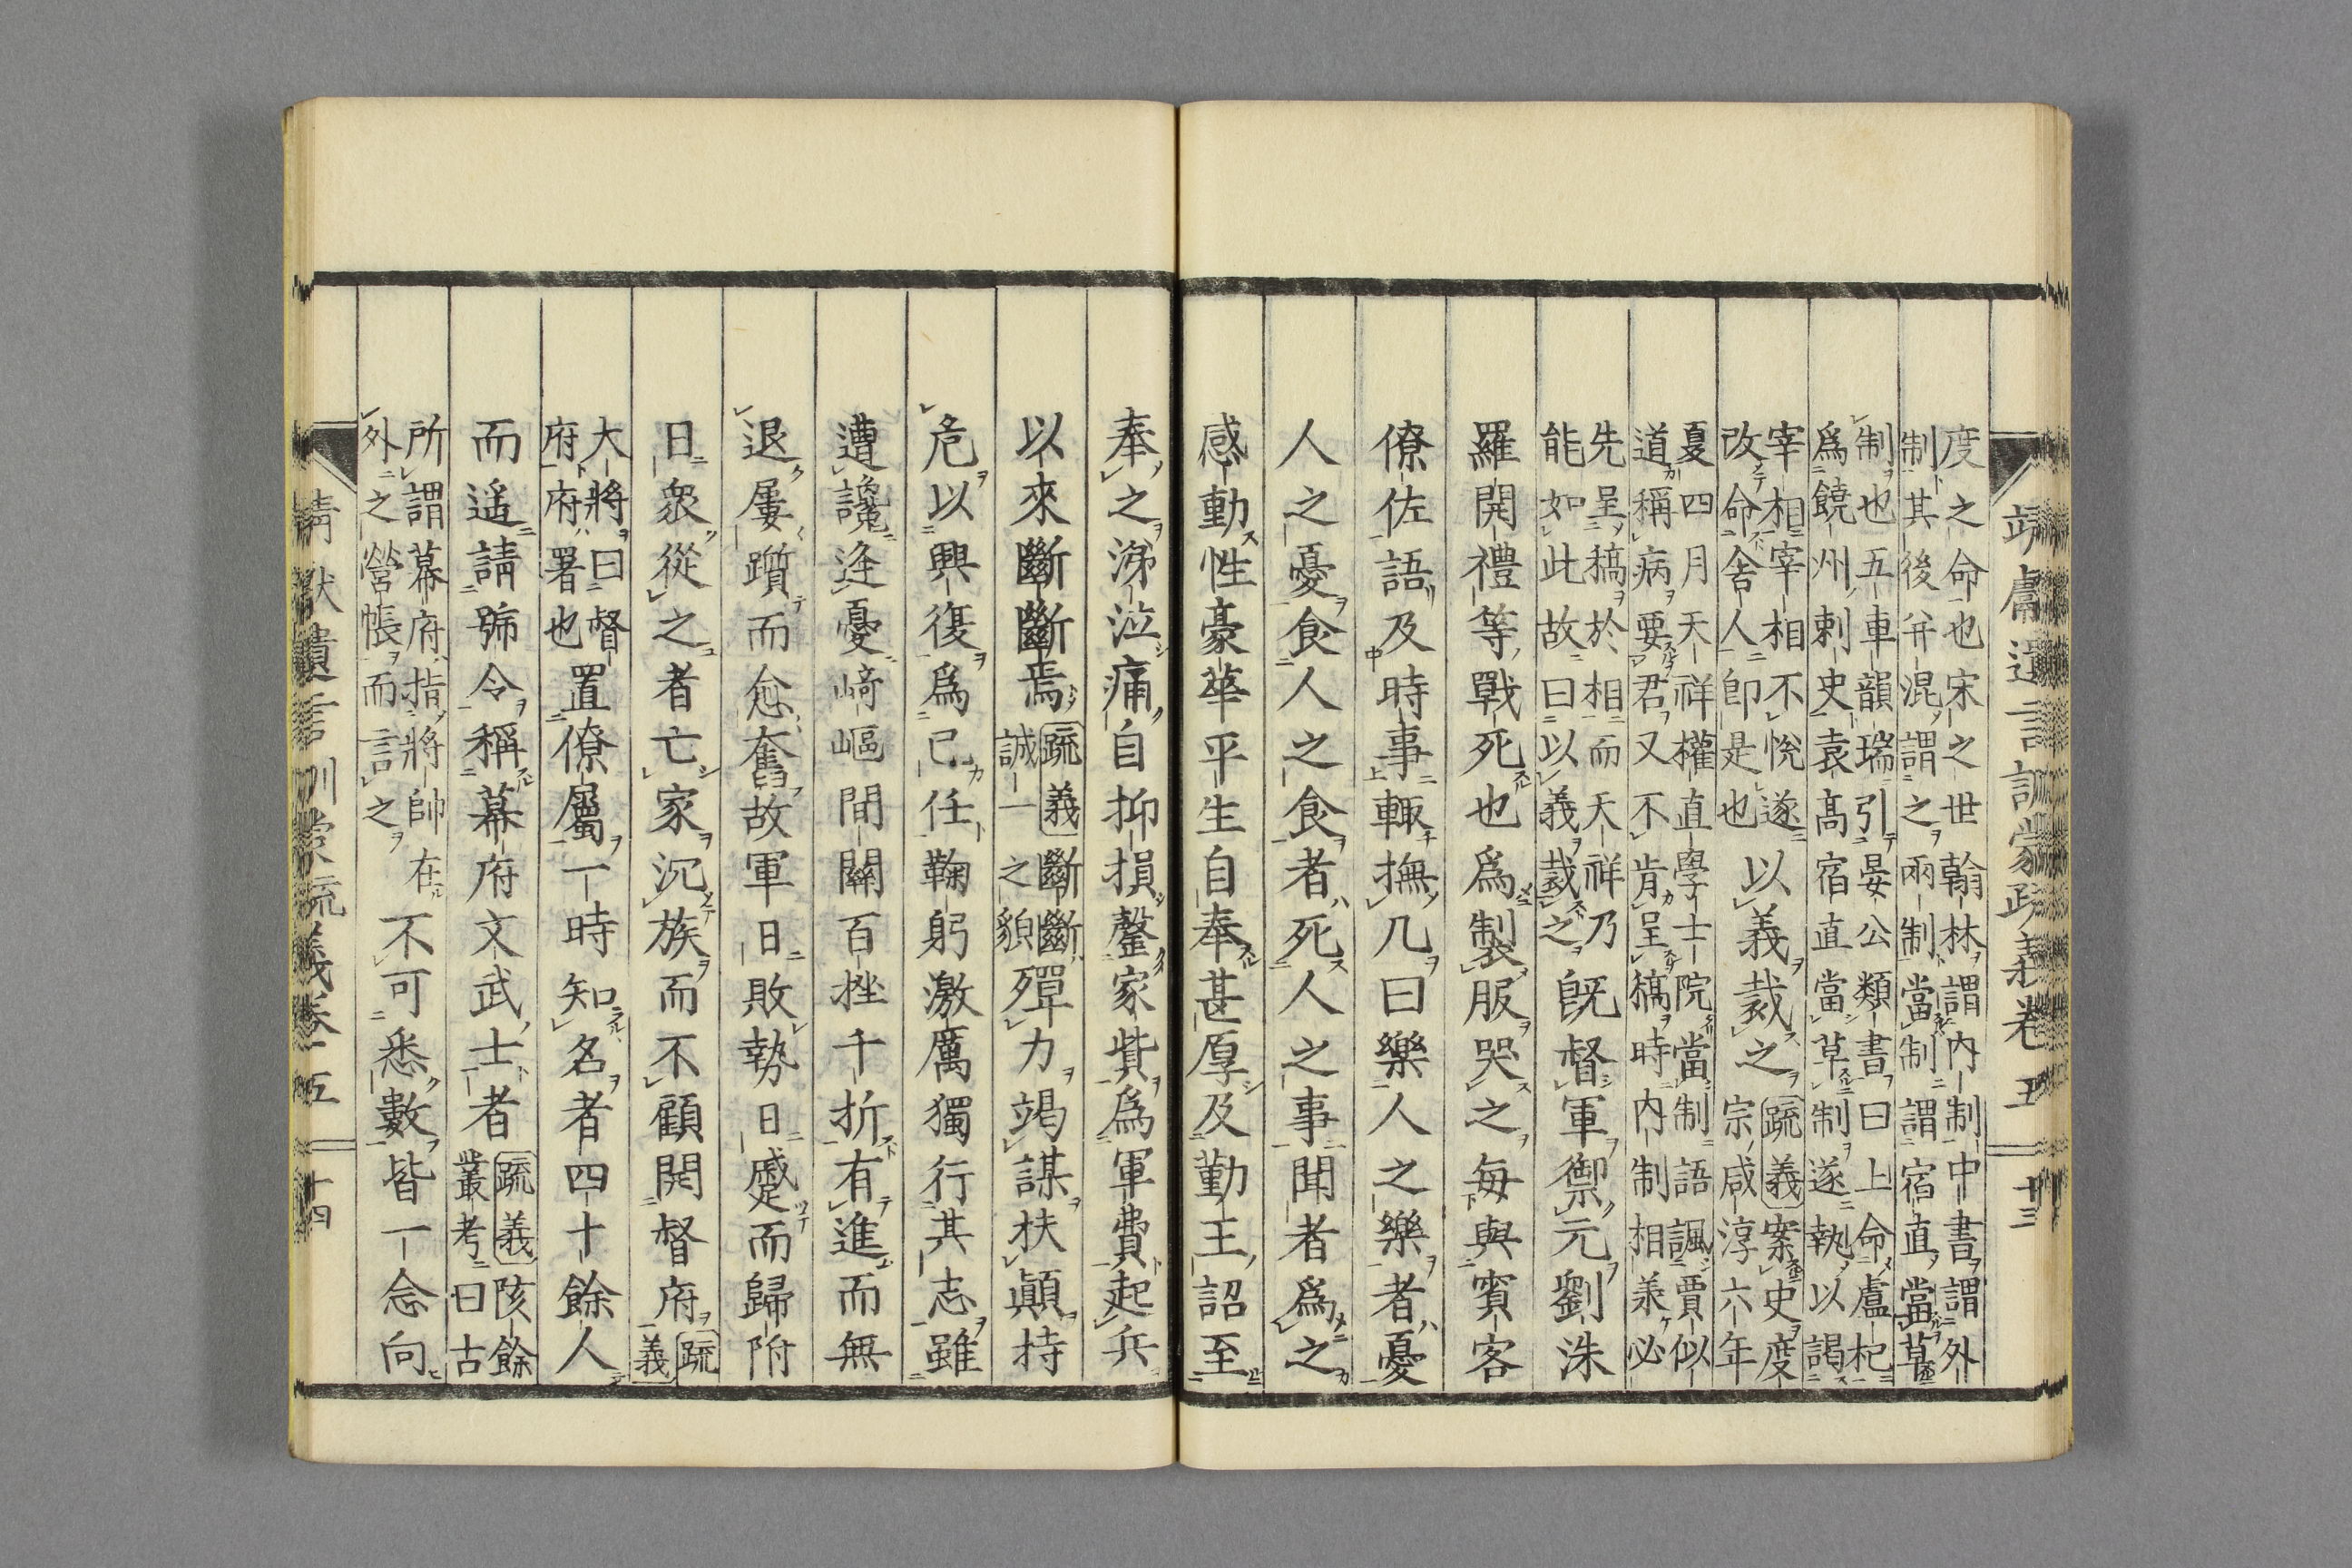 靖獻遺言訓蒙疏義卷五 十三
度之命也宋之世翰林謂內制中書謂外
制其後幷混謂之兩制當制謂宿直當草
制也五車韻瑞引晏公類書曰上命盧杞
爲饒州刺史袁髙宿直當草制遂執以謁
宰相宰相不悅遂
改命舍人卽是也
以義裁之
疏義案史度
宗咸淳六年
夏四月天祥權直學士院當制語諷賈似
道稱病要君又不肯呈稿時內制相承必
先呈稿於相而天祥乃
能如此故曰以義裁之
旣督軍禦元劉洙
羅開禮等戰死也爲製服哭之每與賓客
僚佐語及時事輒撫几曰樂人之樂者憂
人之憂食人之食者死人之事聞者爲之
感動性豪華平生自奉甚厚及勤王詔至
奉之涕泣痛自抑損罄家貲爲軍費起兵
以來斷斷焉
疏義斷斷
誠一之貌
殫力竭謀扶顚持
危以興復爲己任鞠躬激厲獨行其志雖
遭讒逢憂崎嶇間關百挫千折有進而無
退屢躓而愈奮故軍日敗勢日蹙而歸附
日衆從之者亡家沉族而不顧開督府
疏
義
大將曰督
府府署也
置僚屬一時知名者四十餘人
而遙請號令稱幕府文武士者
疏義陔餘
叢考曰古
所謂幕府指將帥在
外之營帳而言之
不可悉數皆一念向
靖獻遺言訓蒙疏義卷五 十四